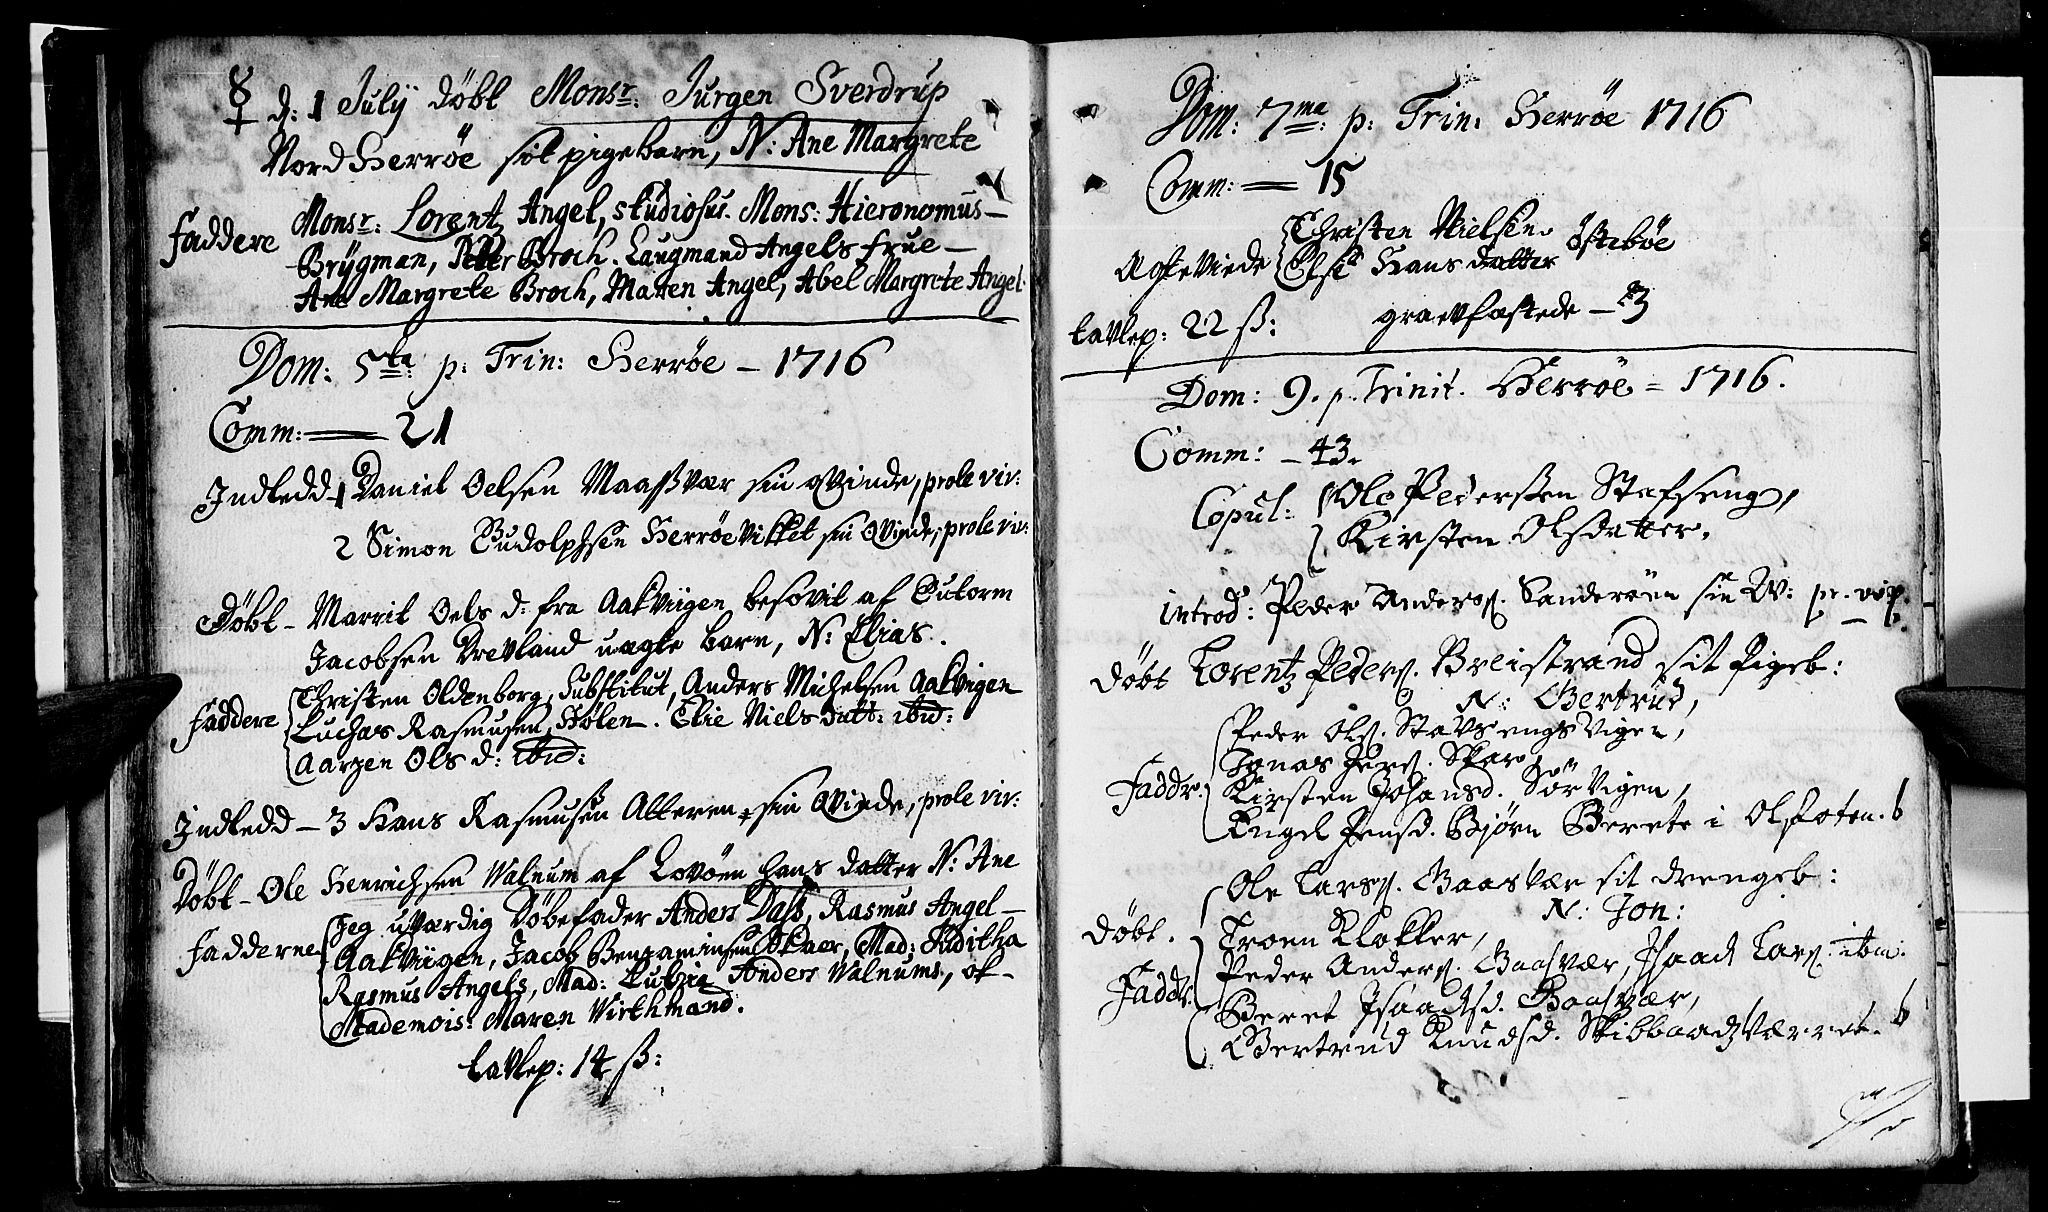 ☿ d: 1 Julÿ døbt Monsr: Jurgen Sverdrup
Nord Herrøe sit pigebarn, N: Ane Margrete
Faddere Monsr: Lorentz Angel, studiosus. Mons: Hieronomus
Brÿgman, Peter Broch. Laugmand Angels frue
Ane Margrete Broch, Maren Angel, Abel Margrete Angel.
Dom: 5ta p: Trin: Herrøe – 1716
Comm: — 21
Indledd – 1 Daniel Oelsen Maassvær sin qvinde, prole viv:
2 Simon Rudolphsen Herrøe Vikket sin Qvinde, prole viv:
Døbt – Marrit Oels d: fra Aakviigen besovit af Gutorm
Jacobsen Drevland uægte barn, N: Elias.
Faddere Christen Oldenborg, Substitut, Anders Michelsen Aakvigen
Luchas Rasmusen, Hølen. Elie Niels datt: ibid:
Aargen Ols d: ibid:
Indledd – 3 Hans Rasmusen Alteren sin Qvinde, prole viv:
Døbt – Ole Henrichsen Walnum af Lovøen hans datter N: Ane
Fadderne Jeg uværdig Døbefader Anders Dass, Rasmus Angel
Aakviigen, Jacob Benjaminsen Skaer, Mad: Juditha
Rasmus Angels, Mad: Lubzie Anders Walnums, ok
Mademois: Maren Wirthmand.
tavlep: 14 ß:
Dom: 7me: p: Trin: Herrøe 1716
Comm: — 15
Ægteviede Christen Nielsen
Else Hans datter Østebøe
tavlep: 22 ß: graevfæstede – 3
Dom: 9. p. Trinit. Herrøe = 1716.
Comm: – 43.
Copul: Ole Pedersen Stafseng,
Kirsten Olsdatter.
introd: Peder Anders. Sanderøen sin W: pr. viv.
Døbt Lorentz Peders. Breistrand sit Pigeb:
N: Bertrud,
Peder Ols. Stavsengs Vigen,
Faddr: Jonas Jvers. Skar,
Kirsten Johansd. Sør Vigen,
Engel Jensd. Bjørn Berete i Olfoten. b
Døbt. Ole Larss. Baasvær sit drengeb:
N: Jon:
Troen Klokker,
Faddr: Peder Anders. Baasvær, Isaach Lars. ibm.
Beret Isaachsd. Baasvær,
Bertrud Knudsd. Skibbaadsværret. b